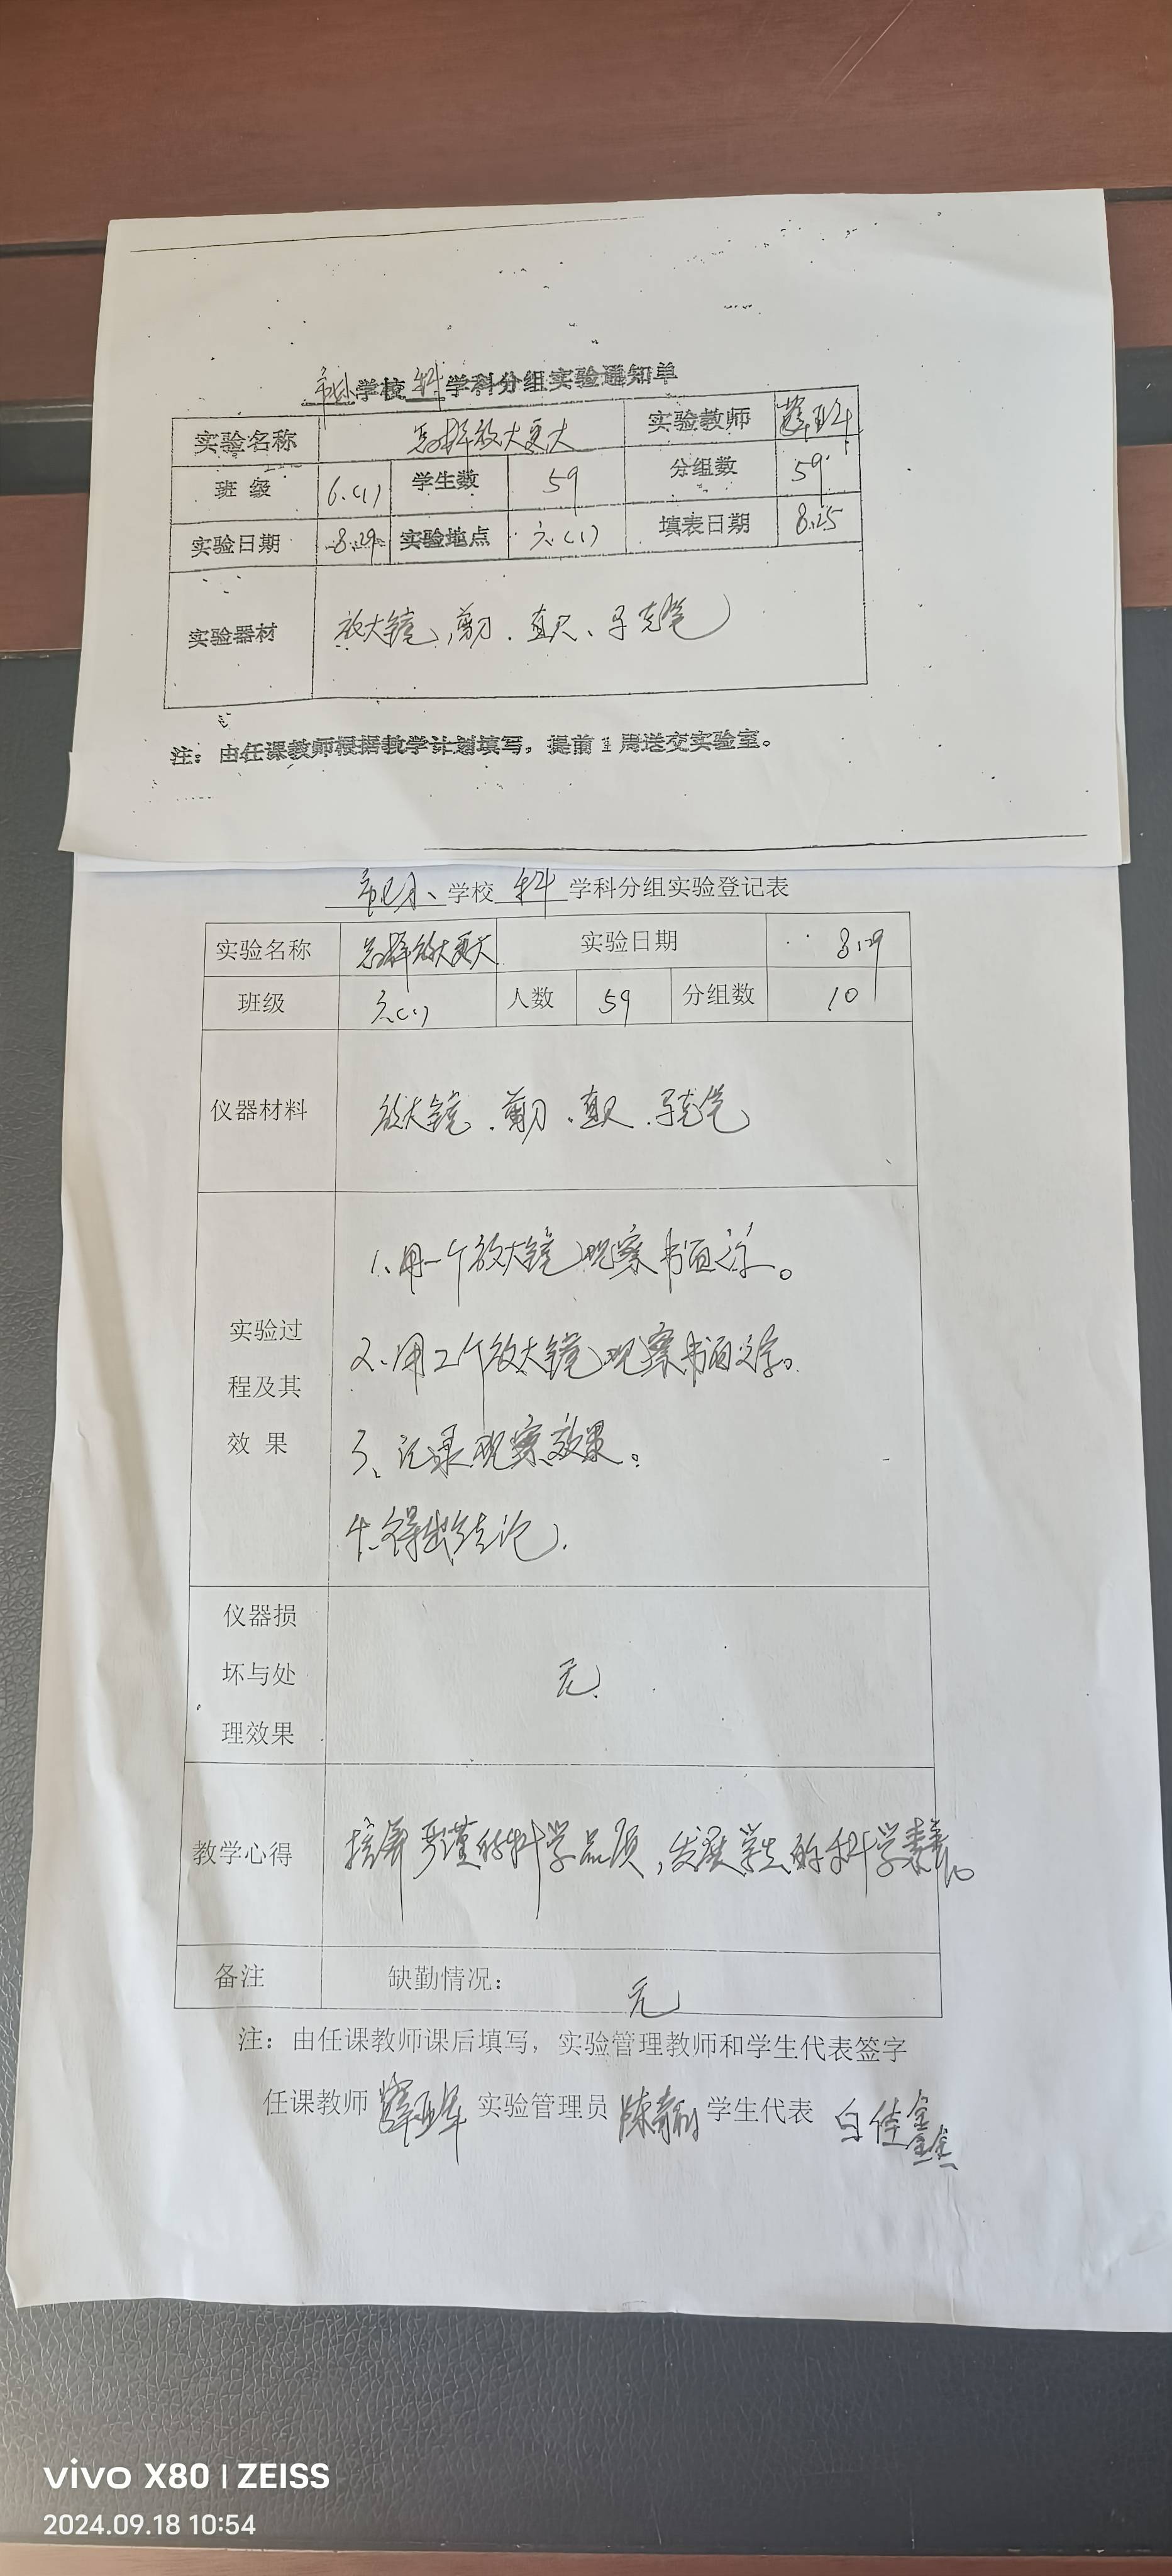 学校 科 学科分组实验通知单
实验名称 怎样放大更大 实验教师
班 级 6.(1) 学生数 59 分组数 59
实验日期 8.29 实验地点 六.(1) 填表日期 8.25
实验器材 放大镜、剪刀、直尺、马克笔
注：由任课教师根据教学计划填写，提前1周送交实验室。
学校 科 学科分组实验登记表
实验名称 怎样放大更大 实验日期 8.29
班级 六(1) 人数 59 分组数 10
仪器材料 放大镜、剪刀、直尺、马克笔
实验过
程及其
效 果
1、用一个放大镜观察书面文字。
2、用2个放大镜观察书面文字。
3、记录观察效果。
4、得出结论.
仪器损
坏与处
理效果
无.
教学心得 培养严谨的科学品质，发展学生的科学素养。
备注 缺勤情况： 无
注：由任课教师课后填写，实验管理教师和学生代表签字
任课教师 实验管理员 学生代表 白佳鑫
vivo X80 | ZEISS
2024.09.18 10:54